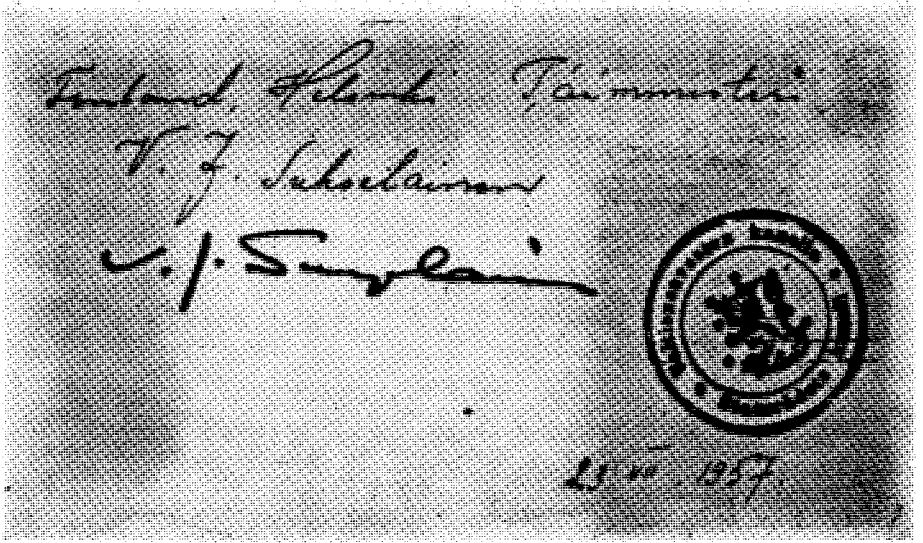 Finland, Helsinki Pääministeri
V. J. Sukselainen
V. J. Sukselainen
1957.